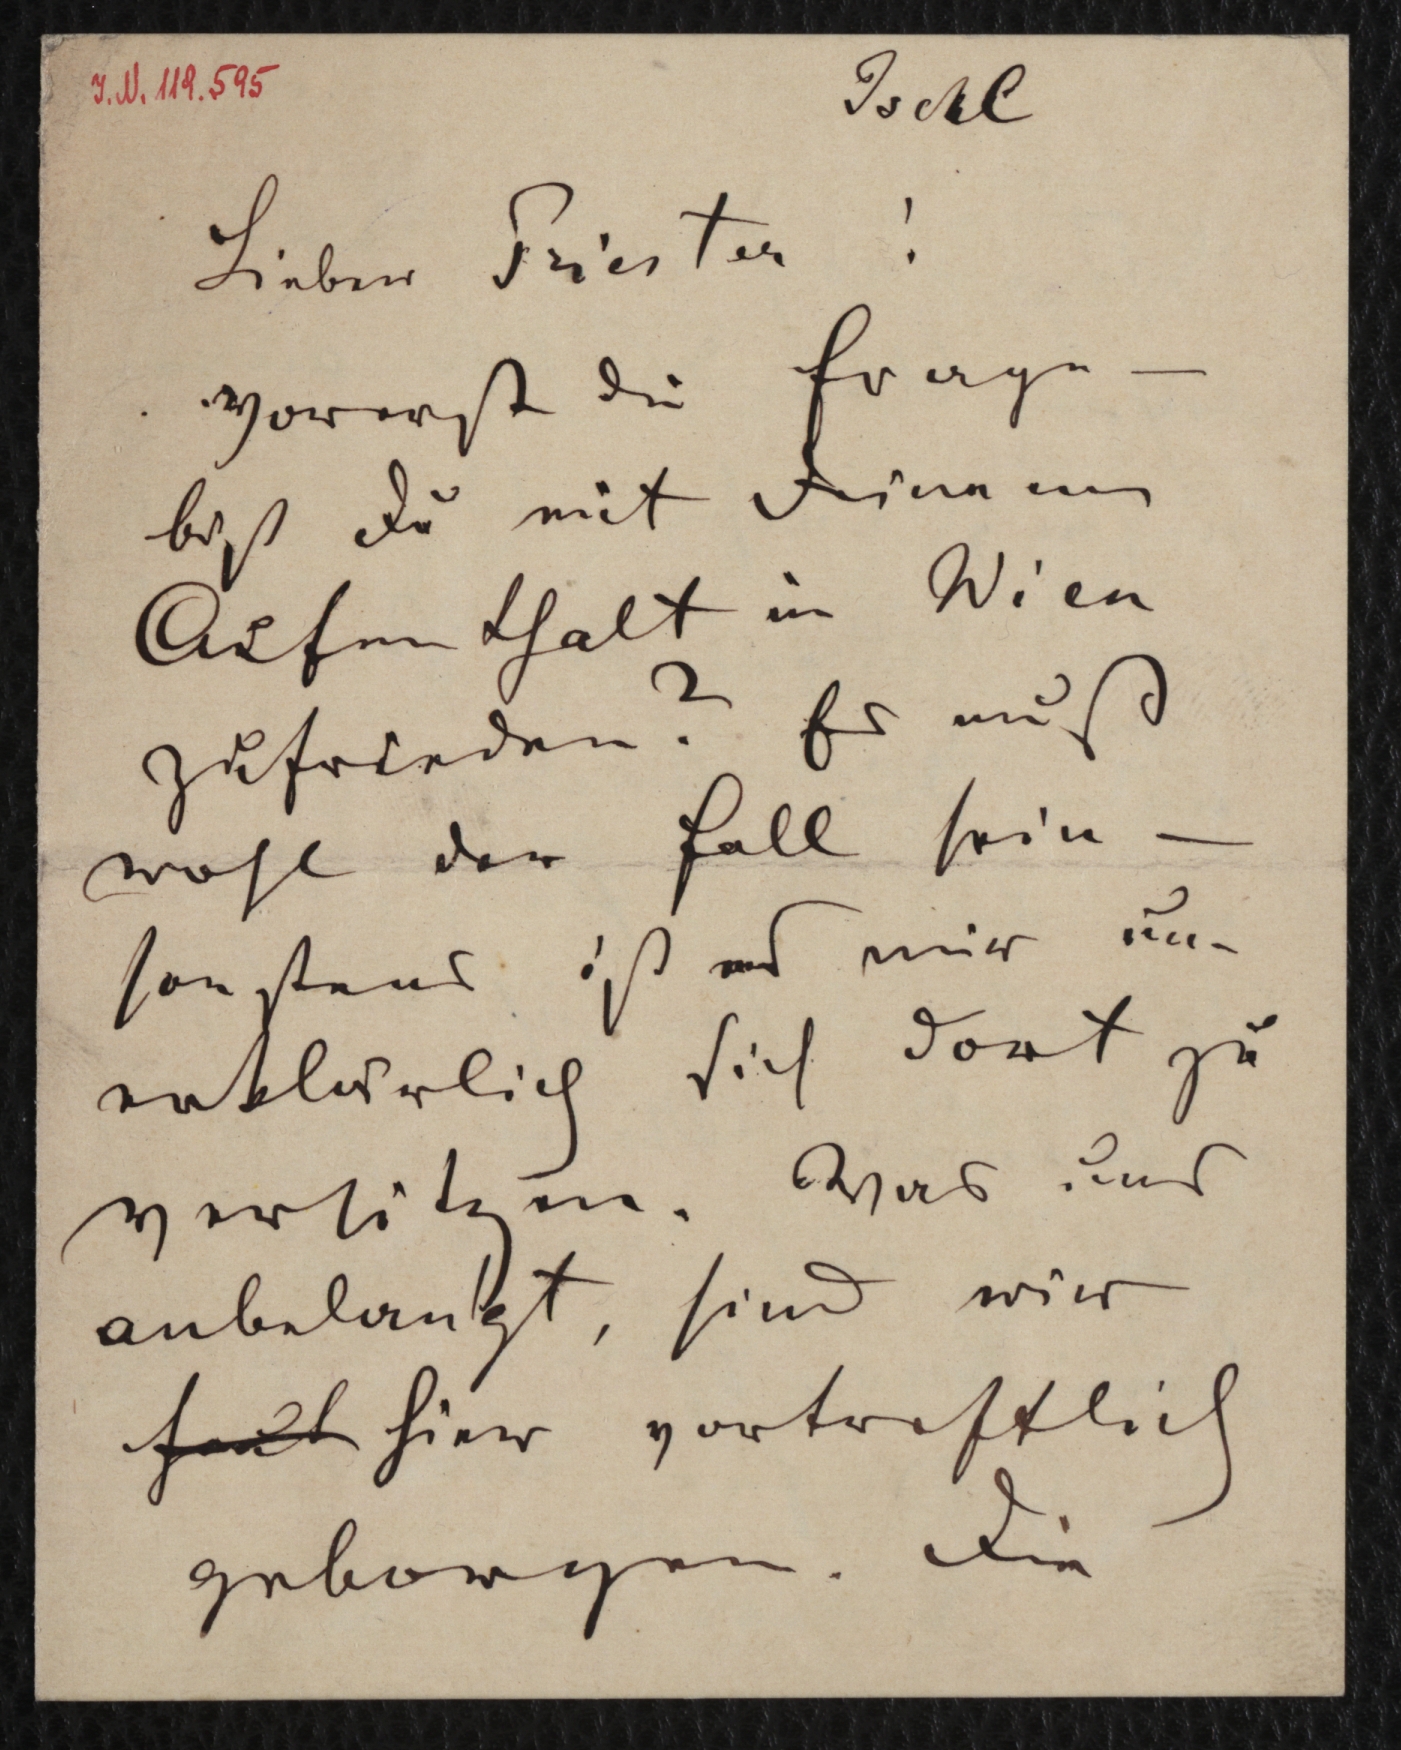 J.N. 119.595
Ischl
Lieber Priester!
vorerst die Frage —
bist Du mit Deinem
Aufenthalt in Wien
zufrieden? Es muß
wohl der Fall sein —
sonstens ist es mir un-
erklärlich sich dort zu
versitzen. Was uns
anbelangt, sind wir
hier vortrefflich
geborgen. Die